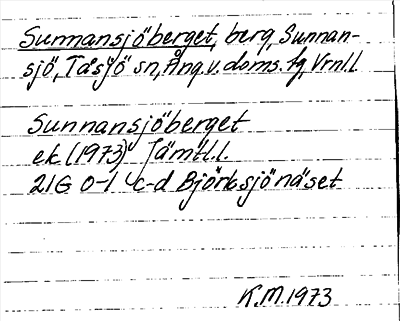 Sunnansjöberget, berg, Sunnan-
sjö, Tåsjö sn, Ång.v. doms. tg, Vrnl.l
Sunnansjöberget
ek. (1973) Jämtl.l.
21G 0-1 c-d Björksjönäset
K.M. 1973